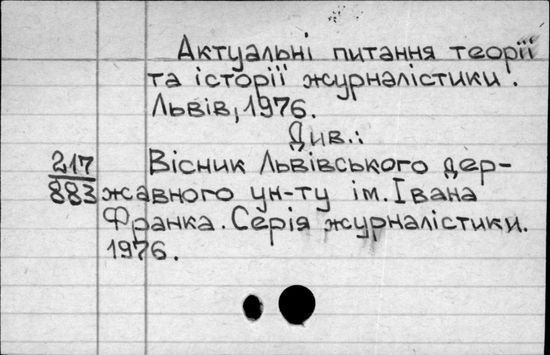 Актуальні питання теорії
та історії журналістики.
Львів, 1976.
Див.:
217 Вісник Львівського дер-
883 жавного ун-ту ім. Івана
Франка. Серія журналістики.
1976.